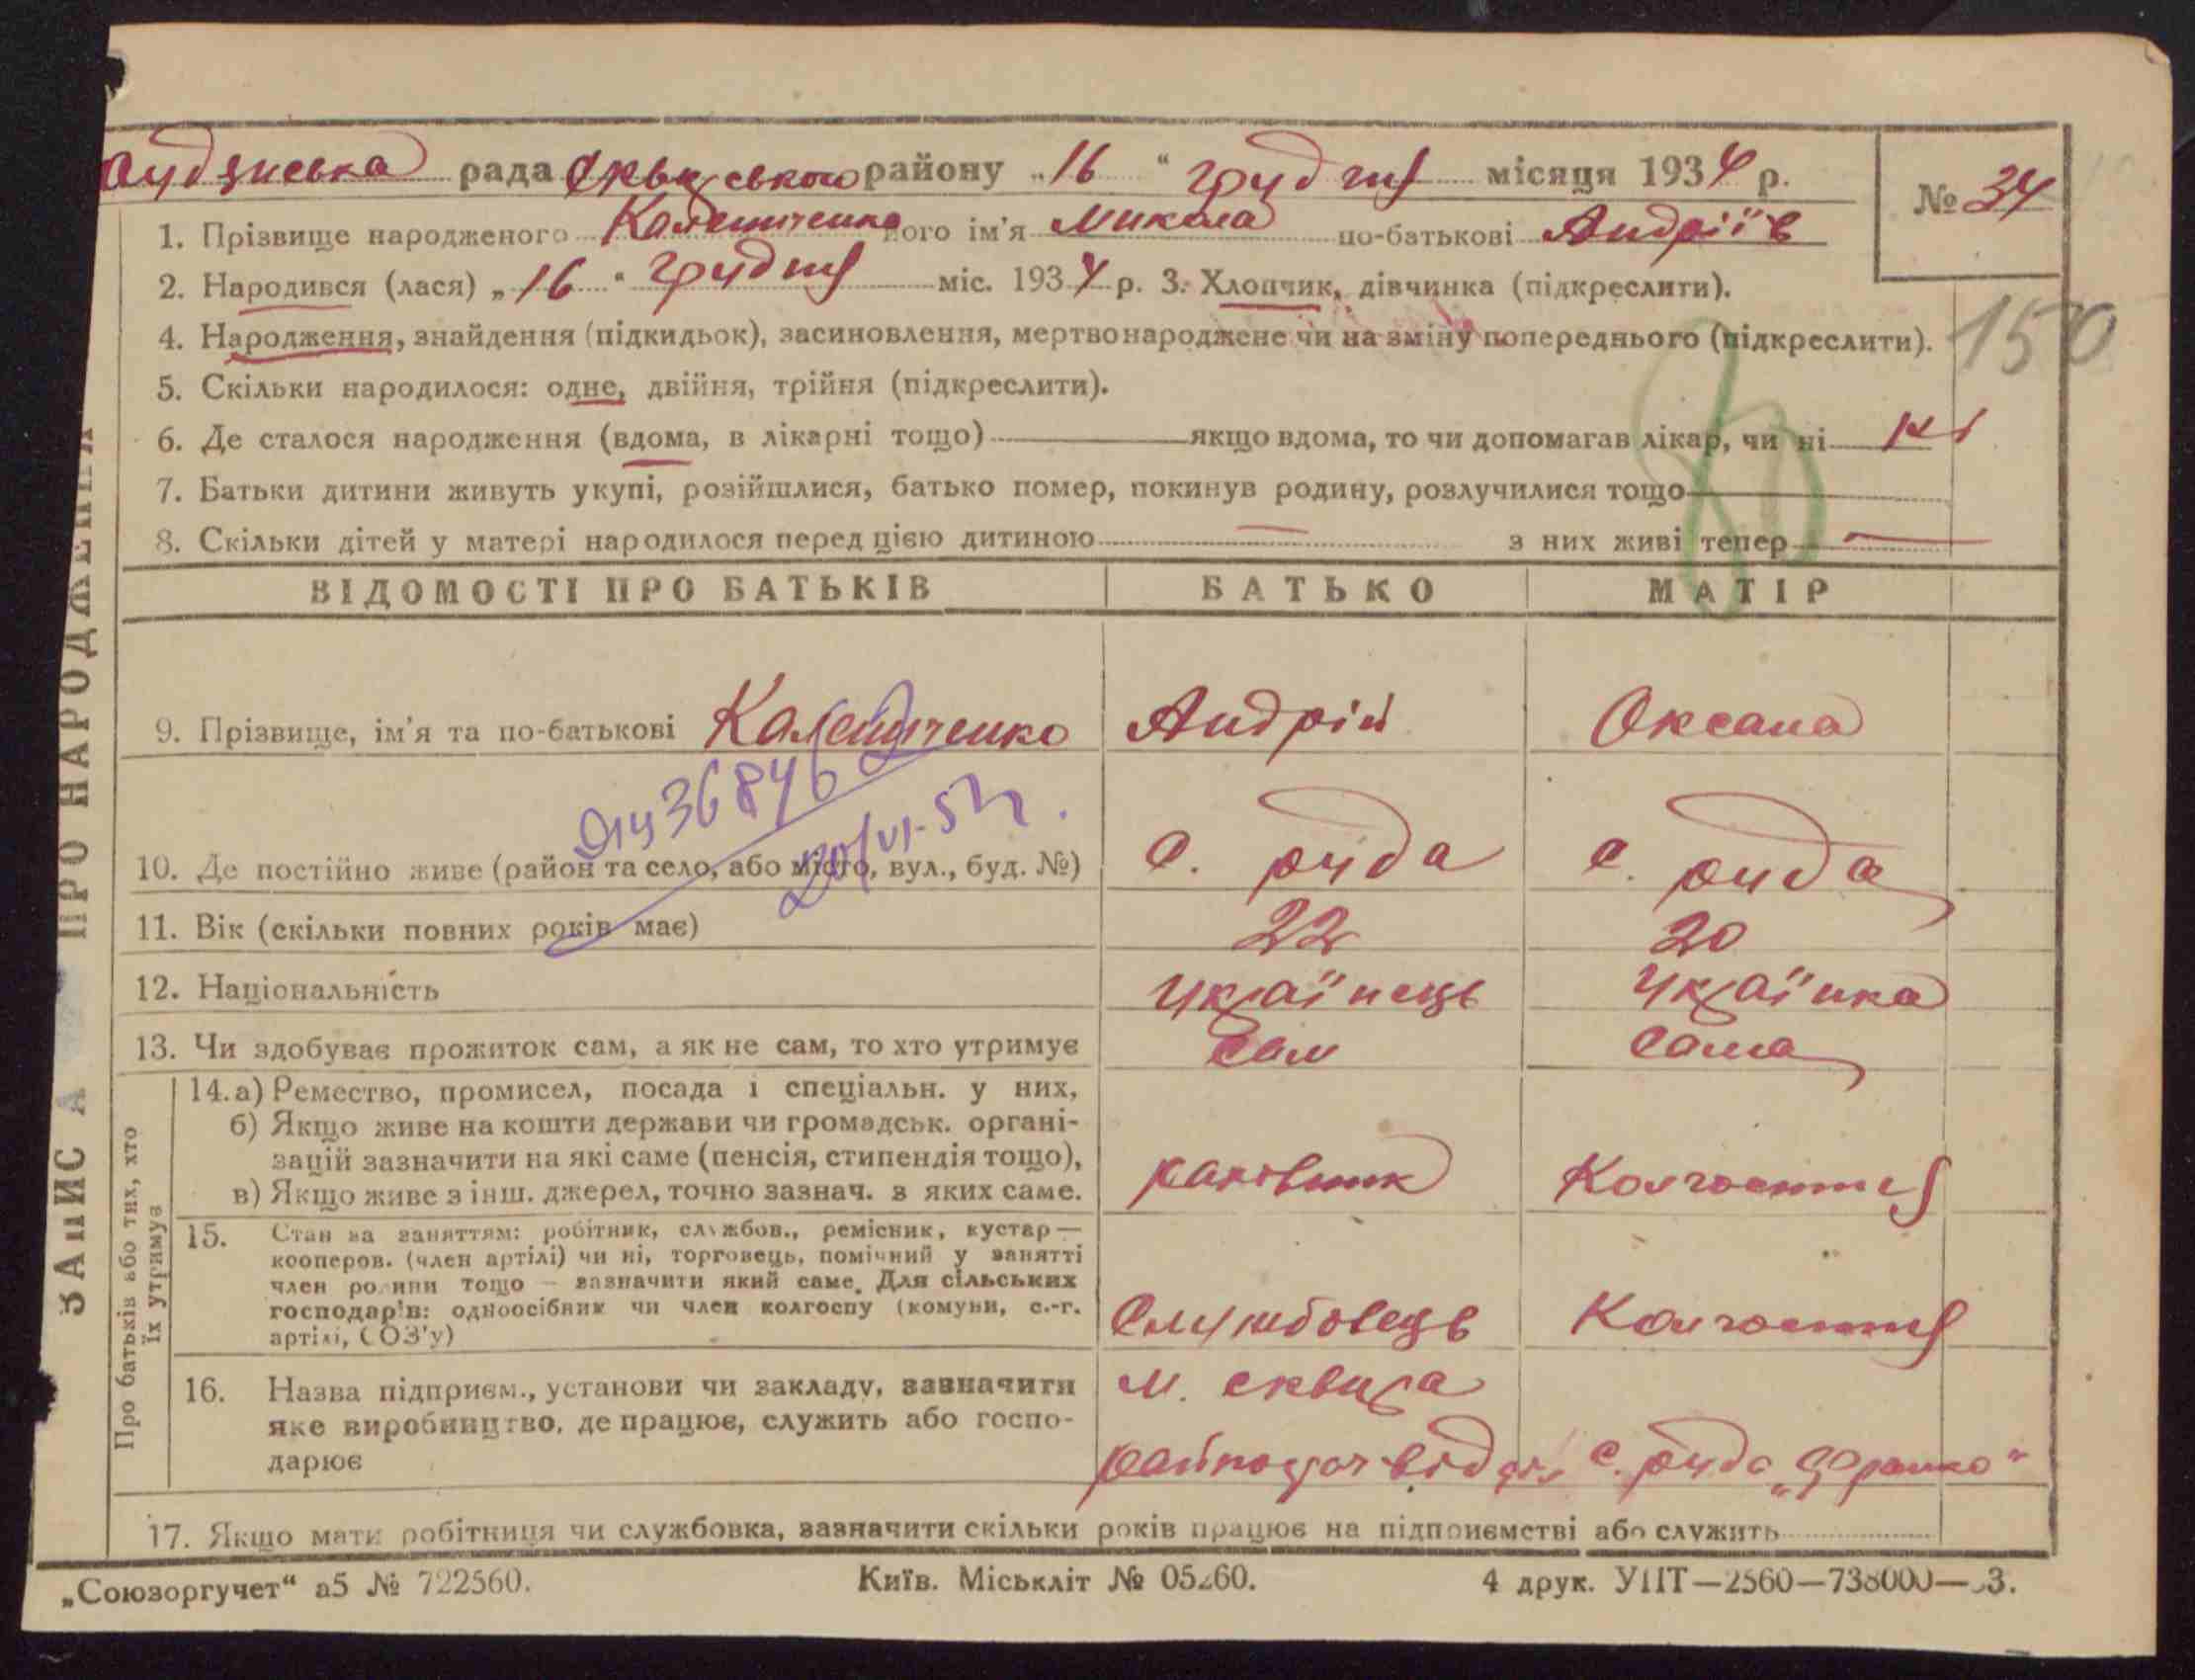 Рудянська рада Сквирського району „16“ грудня місяця 1934 р.
№ 34
1. Прізвище народженого його ім'я Микола по-батькові Андріїв
2. Народився (лася) „16“ грудня міс. 1934 р. 3. Хлопчик, дівчинка (підкреслити).
4. Народження, знайдення (підкидьок), засиновлення, мертвонароджене чи на зміну попереднього (підкреслити).
150
5. Скільки народилося: одне, двійня, трійня (підкреслити).
6. Де сталося народження (вдома, в лікарні тощо) якщо вдома, то чи допомагав лікар, чи ні ні
7. Батьки дитини живуть укупі, розійшлися, батько помер, покинув родину, розлучилися тощо
8. Скільки дітей у матері народилося перед цією дитиною — з них живі тепер —
ВІДОМОСТІ ПРО БАТЬКІВ БАТЬКО МАТІР
9. Прізвище, ім'я та по-батькові Андрій Оксана
10. Де постійно живе (район та село, або місто, вул., буд. №) с. Руда с. Руда
11. Вік (скільки повних років має) 22 20
12. Національність Українець Українка
13. Чи здобуває прожиток сам, а як не сам, то хто утримує Сам Сама
14. а) Ремество, промисел, посада і спеціальн. у них,
б) Якщо живе на кошти держави чи громадськ. органі-
зацій зазначити на які саме (пенсія, стипендія тощо),
в) Якщо живе з інш. джерел, точно зазнач. з яких саме.
рахівник Колгоспниця
15. Стан за заняттям: робітник, службов., ремісник, кустар —
кооперов. (член артілі) чи ні, торговець, помічний у занятті
член родини тощо — зазначити який саме. Для сільських
господарів: одноосібник чи член колгоспу (комуни, с.-г.
артілі, СОЗ'у)
Службовець Колгоспниця
16. Назва підприєм., установи чи закладу, зазначити
яке виробництво, де працює, служить або госпо-
дарює
м. Сквира
с. Руда „Франко“
17. Якщо мати робітниця чи службовка, зазначити скільки років працює на підприємстві або служить
ЗАПИС А ПРО НАРОДЖЕННЯ
Про батьків або тих, хто
їх утримує
„Союзоргучет“ а5 № 722560. Київ. Міськліт № 05260. 4 друк. УПТ—2560—738000—33.